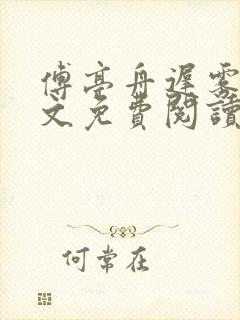 傅亭舟遲霧
文免費閱讀
何常在